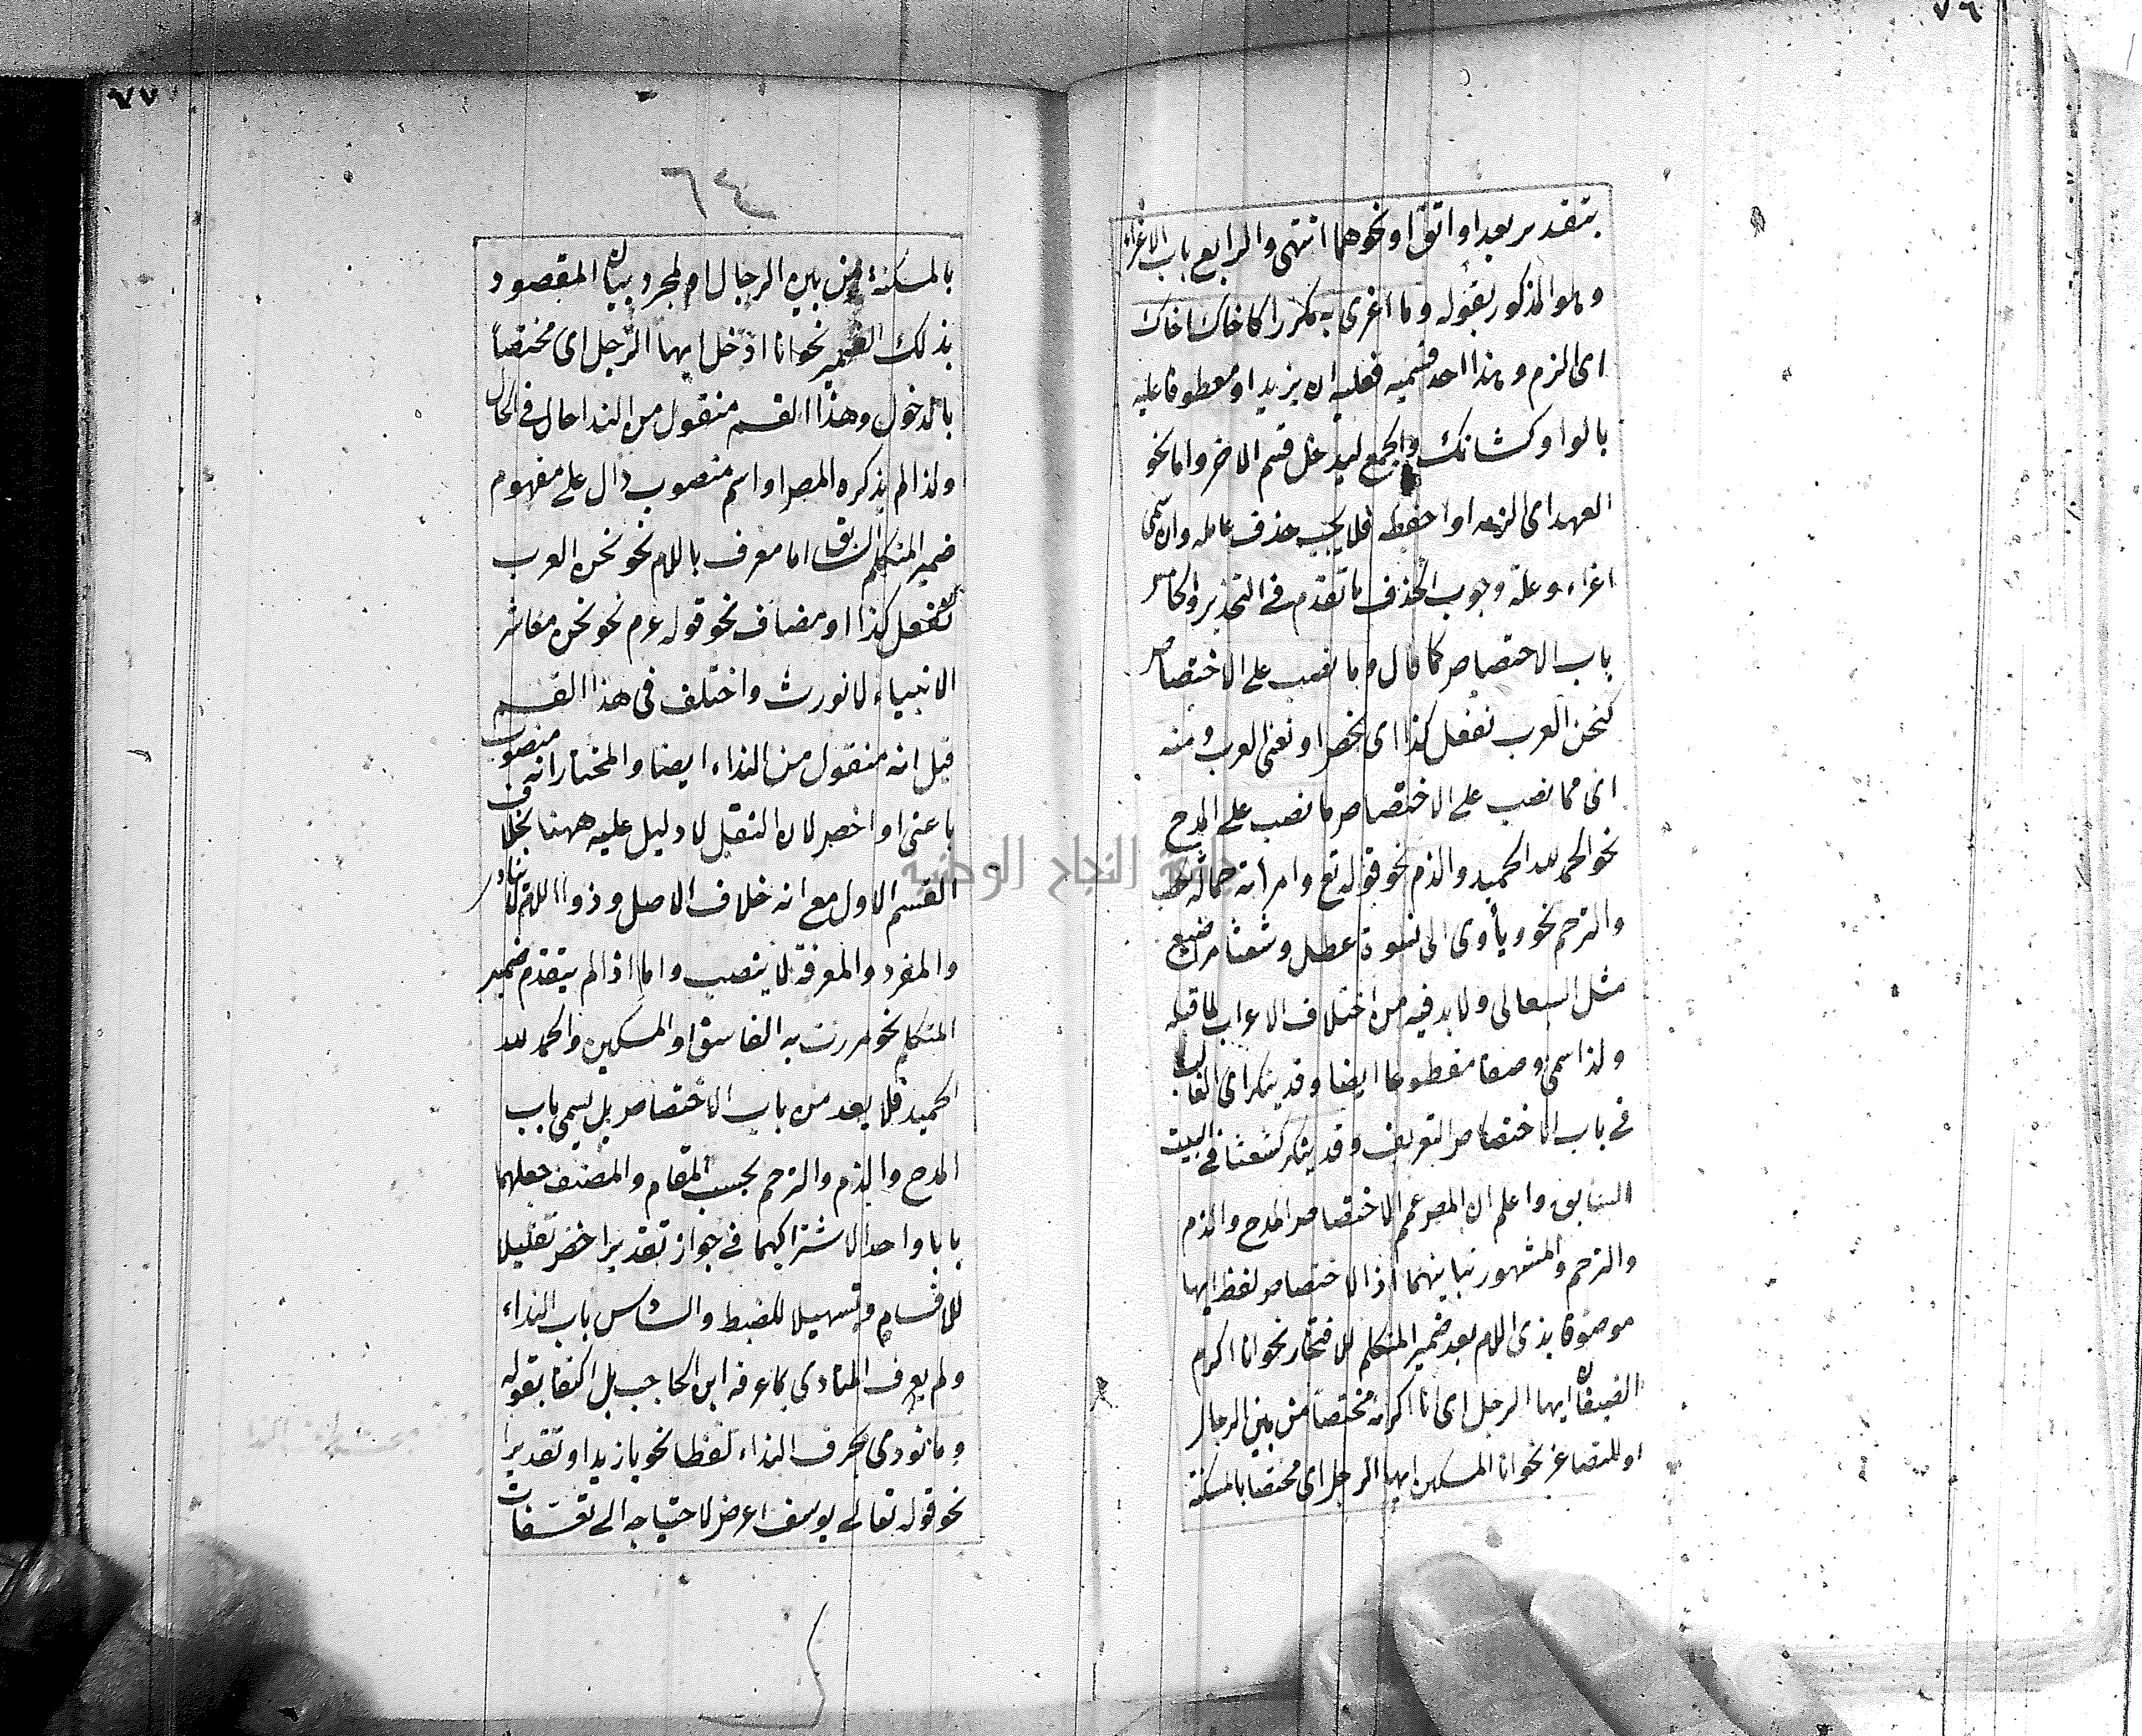 ٧٦
بتقدير بعد او اتق او نحوهما انتهى والرابع باب الاغراء
وهو المذكور بقوله وما اغرى به مكررا كاخاك اخاك
اى الزم وهذا احد قسميه فعليه ان يزيد او معطوفا عليه
بالواو كشانك والحج ليدخل قسم الاخر واما نحو
العهد اى الزمه او احفظه فلا يجب حذف عامله وان سمى
اغراء وعلة وجوب الحذف ما تقدم فى التحذير والخامس
باب الاختصاص كما قال وما نصب على الاختصاص
كنحن العرب نفعل كذا اى نخص او نعنى العرب ومنه
اى مما نصب على الاختصاص ما نصب على المدح
نحو الحمد لله الحميد والذم نحو قوله تع وامرأته حمالة حطب
والترحم نحو ويأوى الى نسوة عطل وشعثا مراضيع
مثل السعالى ولا بد فيه من اختلاف الاعراب لما قبله
ولذا سمى وصفا مقطوعا ايضا وقد ينكر اى الغالب
فى باب الاختصاص التعريف وقد ينكر كشعثا فى البيت
السابق واعلم ان المص عمم الاختصاص المدح والذم
والترحم والمشهور تباينهما اذ الاختصاص لفظ ايها
موصوفا بذى اللام بعد ضمير المتكلم للافتخار نحو انا اكرم
الضيفان ايها الرجل اى انا اكرم مختصا من بين الرجال
او للتصاغر نحو انا المسكين ايها الرجل اى مختصا بالمسكنة
٧٧
٦٤
بالمسكنة من بين الرجال او لمجرد بيان المقصود
بذلك الضمير نحو انا ادخل ايها الرجل اى مختصاً
بالدخول وهذا القسم منقول من الندا حال فى الحال
ولذا لم يذكره المص او اسم منصوب دال على مفهوم
ضمير المتكلم السابق اما معرف باللام نحو نحن العرب
نفعل كذا او مضاف نحو قوله عم نحو نحن معاشر
الانبياء لا نورث واختلف فى هذا القسم
قيل انه منقول من النداء ايضا والمختار انه منصوب
باعنى او اخص لان النقل لا دليل عليه ههنا بخلاف
القسم الاول مع انه خلاف الاصل وذو اللام لا ينادى
والمفرد والمعرفة لا ينصب واما اذا لم يتقدم ضمير
المتكلم نحو مررت به الفاسق او المسكين والحمد لله
الحميد فلا يعد من باب الاختصاص بل يسمى باب
المدح والذم والترحم بحسب المقام والمصنف جعلهما
بابا واحدا لاشتراكهما فى جواز تقدير اخص تقليلا
للاقسام وتسهيلا للضبط والسادس باب النداء
ولم يعرف المنادى بما عرفه ابن الحاجب بل اكتفا بقوله
وما نودى بحرف النداء لفظا نحو يا زيد او تقديرا
نحو قوله تعالى يوسف اعرض لاحتياجه الى تعسفات
جامعة النجاح الوطنية